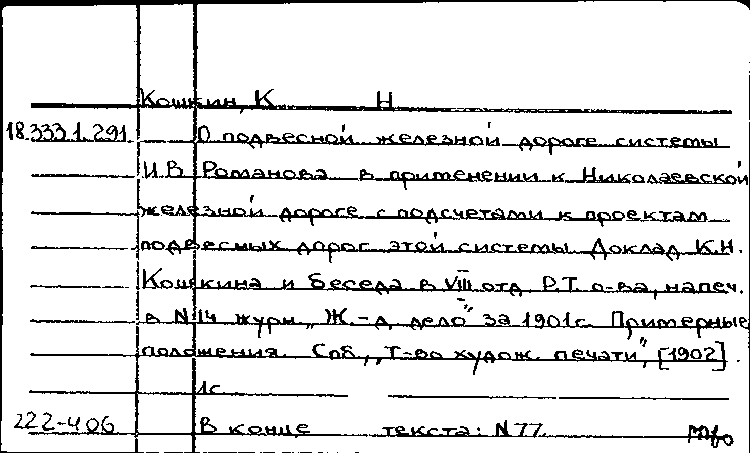 Кошкин, К Н
18.333.1.291 О подвесной железной дороге системы
И.В Романова в применении к Николаевской
железной дороге с подсчетами к проектам
подвесных дорог этой системы Доклад К.Н.
Кошкина и беседа в VIII отд Р.Т. о-ва, напеч.
в N 14 журн „Ж.-д дело" за 1901г. Примерные
положения. Спб, „Т-во худож. печати", [1902].
1с
222-406 В конце текста: N 77.